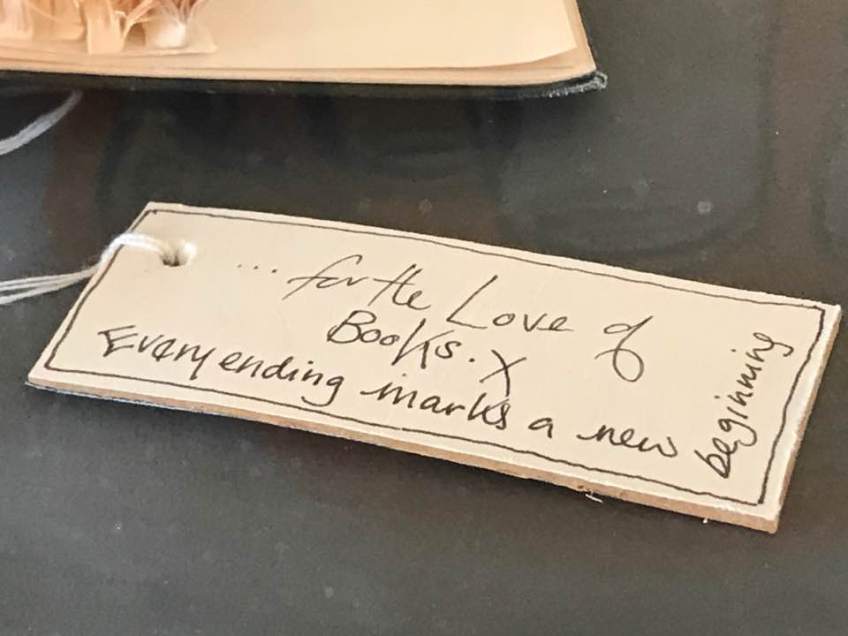 ... for the Love of
Books. X
Every ending marks a new
beginning